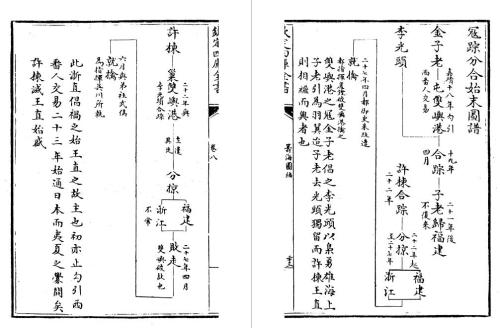 寇踪分合始末圖譜
金子老
嘉靖十八年勾引
西番人交易
屯雙嶼港
十九年
四月
合踪
子老歸福建
二十一年後
不復來
李光頭
許棟合踪
二十二年
分掠
二十二年起
至二十七年
福建
浙江
就擒
二十七年四月都御史朱紈遣
都指揮盧鏜破雙嶼港擒之
雙嶼港之寇金子老倡之李光頭以梟勇雄海上
子老引為羽翼迨子老去光頭獨留而許棟王直
則相繼而興者也
籌海圖編
欽定四庫全書
卷八
許棟
巢雙嶼港
二十二年與
李光頭合踪
分掠
福建
浙江
不常
敗走
二十七年四月
雙嶼破故也
就擒
六月與弟社武俱
為指揮吳川所執
此浙直倡禍之始王直之故主也初亦止勾引西
番人交易二十三年始通日本而夷夏之釁開矣
許棟滅王直始盛